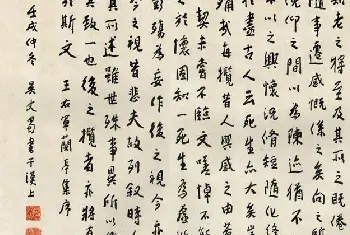 之將至及其所之既倦
隨事遷感慨係之矣向之所
俛仰之間以為陳迹猶不
以之興懷況脩短隨化終
盡古人云死生亦大矣豈
痛哉每攬昔人興感之由若
契未嘗不臨文嗟悼不能
於懷固知一死生為虛
殤為妄作後之視今亦
今之視昔悲夫故列敘時人
其所述雖世殊事異所以
其致一也後之攬者亦將有
於斯文 王右軍蘭亭集序
壬戌仲冬 吳文蜀書于漢上